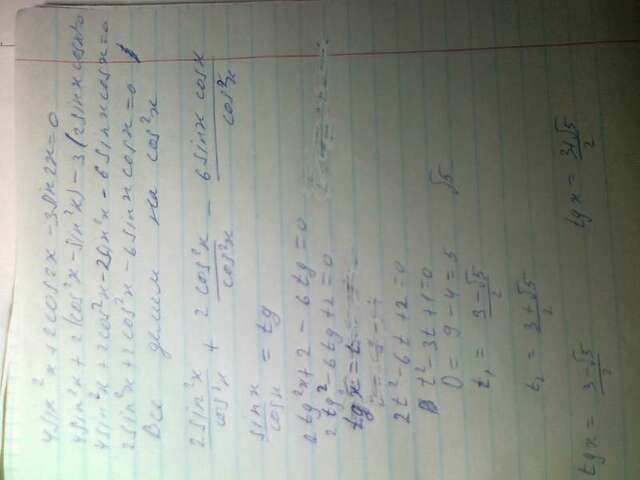 4sin²x+2cos2x-3sin2x=0
4sin²x+2(cos²x-sin²x)-3(2sinxcosx)=0
4sin²x+2cos²x-2sin²x-6sinxcosx=0
2sin²x+2cos²x-6sinxcosx=0
Все делим на cos²x
2sin²x/cos²x + 2cos²x/cos²x - 6sinx cosx/cos²x
sinx/cosx = tg
2tg²x+2-6tg=0
2tg²-6tg+2=0
tgx=t
2t²-6t+2=0
t²-3t+1=0
D=9-4=5 √5
t₁=(3-√5)/2
t₂=(3+√5)/2
tgx=(3-√5)/2 tgx=(3+√5)/2